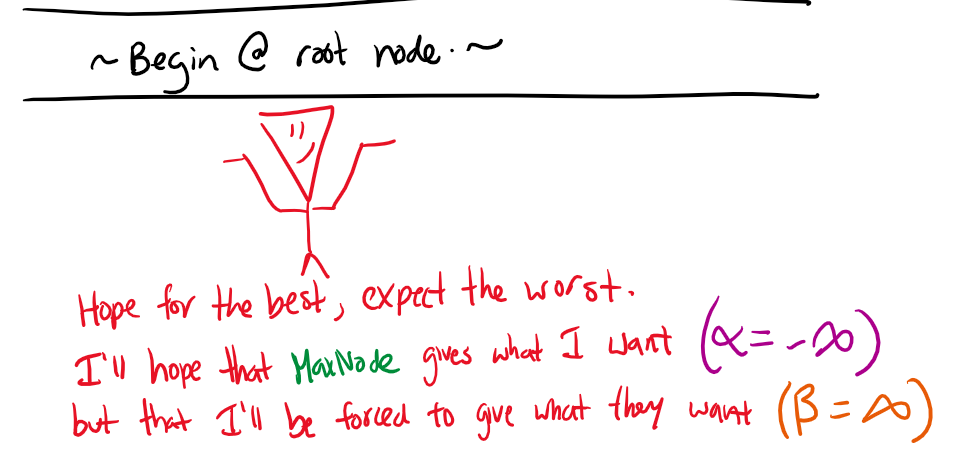 ~Begin @ root node.~
Hope for the best, expect the worst.
I'll hope that MaxNode gives what I want (α=-∞)
but that I'll be forced to give what they want (β=∞)